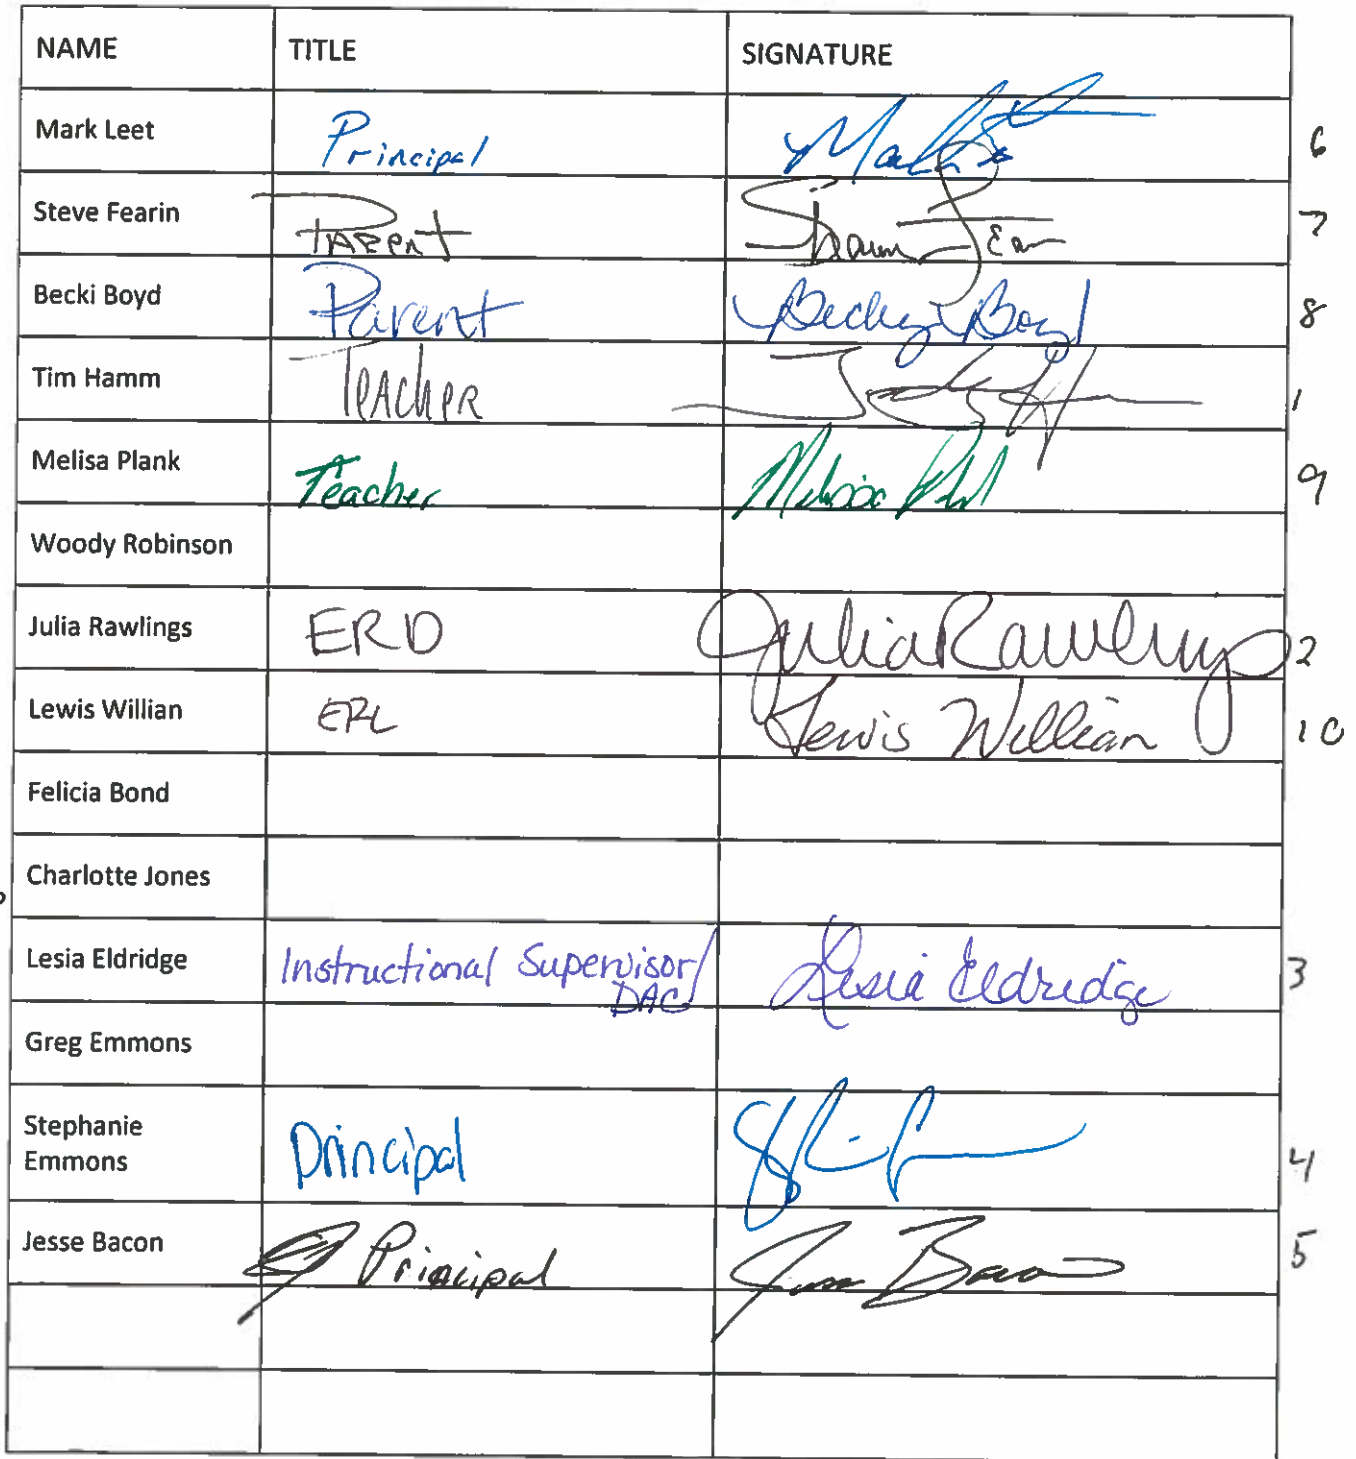 NAME TITLE SIGNATURE
Mark Leet Principal 6
Steve Fearin Parent 7
Becki Boyd Parent Becky Boyd 8
Tim Hamm Teacher 1
Melisa Plank Teacher Melissa 9
Woody Robinson
Julia Rawlings ERD Julia Rawlings 2
Lewis Willian ERL Lewis Willian 10
Felicia Bond
Charlotte Jones
Lesia Eldridge Instructional Supervisor/ Lesia Eldridge 3
DAC
Greg Emmons
Stephanie
Emmons Principal 4
Jesse Bacon Principal Jesse Bacon 5